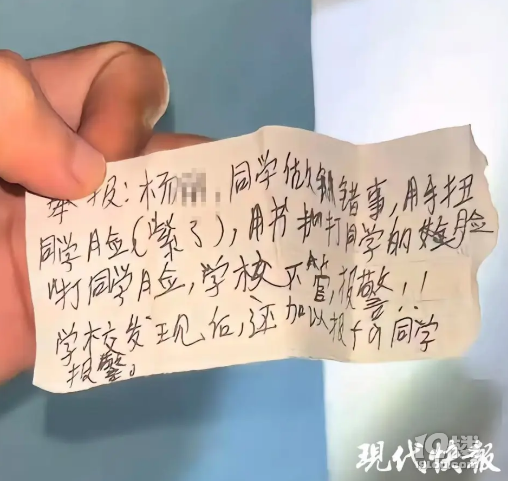 举报:杨,同学做错事,用手扭
同学脸(紫了),用书抽打同学的脸
打同学脸,学校不管,报警!!
学校发现后,还加以报复同学
报警。
现代快报